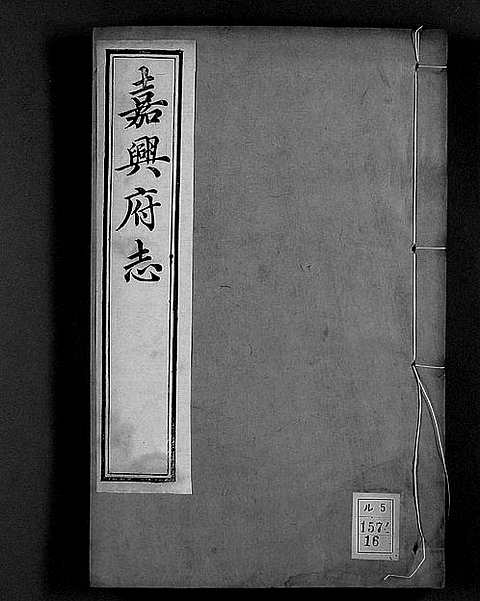 嘉興府志
ル 5
1574
16